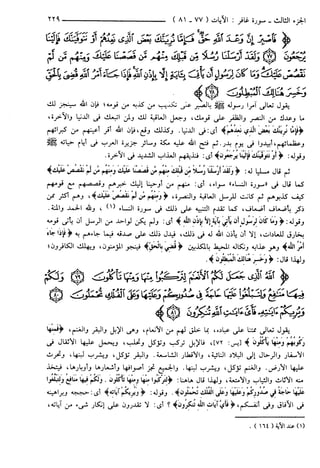 الجزء الثالث - سورة غافر : الآيات (٧٧ - ٨١)
٢٢٩
﴿فَاصْبِرْ إِنَّ وَعْدَ اللَّهِ حَقٌّ فَإِمَّا نُرِيَنَّكَ بَعْضَ الَّذِي نَعِدُهُمْ أَوْ نَتَوَفَّيَنَّكَ فَإِلَيْنَا
يُرْجَعُونَ (٧٧) وَلَقَدْ أَرْسَلْنَا رُسُلًا مِنْ قَبْلِكَ مِنْهُمْ مَنْ قَصَصْنَا عَلَيْكَ وَمِنْهُمْ مَنْ لَمْ
نَقْصُصْ عَلَيْكَ وَمَا كَانَ لِرَسُولٍ أَنْ يَأْتِيَ بِآيَةٍ إِلَّا بِإِذْنِ اللَّهِ فَإِذَا جَاءَ أَمْرُ اللَّهِ قُضِيَ بِالْحَقِّ
وَخَسِرَ هُنَالِكَ الْمُبْطِلُونَ (٧٨)﴾
يقول تعالى آمراً رسوله ﷺ بالصبر على تكذيب من كذبه من قومه؛ فإن الله سينجز لك
ما وعدك من النصر والظفر على قومك، وجعل العاقبة لك ولمن اتبعك في الدنيا والآخرة،
﴿فَإِمَّا نُرِيَنَّكَ بَعْضَ الَّذِي نَعِدُهُمْ﴾ أي: في الدنيا. وكذلك وقع، فإن الله أقر أعينهم من كبرائهم
وعظمائهم، أبيدوا في يوم بدر. ثم فتح الله عليه مكة وسائر جزيرة العرب في أيام حياته ﷺ
وقوله: ﴿أَوْ نَتَوَفَّيَنَّكَ فَإِلَيْنَا يُرْجَعُونَ﴾ أي: فنذيقهم العذاب الشديد في الآخرة.
ثم قال مسلياً له: ﴿وَلَقَدْ أَرْسَلْنَا رُسُلًا مِنْ قَبْلِكَ مِنْهُمْ مَنْ قَصَصْنَا عَلَيْكَ وَمِنْهُمْ مَنْ لَمْ نَقْصُصْ عَلَيْكَ﴾
كما قال في «سورة النساء» سواء، أي: منهم من أوحينا إليك خبرهم وقصصهم مع قومهم
كيف كذبوهم ثم كانت للرسل العاقبة والنصرة، ﴿وَمِنْهُمْ مَنْ لَمْ نَقْصُصْ عَلَيْكَ﴾، وهم أكثر ممن
ذكر بأضعاف أضعاف، كما تقدم التنبيه على ذلك في سورة النساء (١)، ولله الحمد والمنة.
وقوله: ﴿وَمَا كَانَ لِرَسُولٍ أَنْ يَأْتِيَ بِآيَةٍ إِلَّا بِإِذْنِ اللَّهِ﴾ أي: ولم يكن لواحد من الرسل أن يأتي قومه
بخارق للعادات، إلا أن يأذن الله له في ذلك، فيدل ذلك على صدقه فيما جاءهم به ﴿فَإِذَا جَاءَ
أَمْرُ اللَّهِ﴾ وهو عذابه ونكاله المحيط بالمكذبين ﴿قُضِيَ بِالْحَقِّ﴾ فينجو المؤمنون، ويهلك الكافرون؛
ولهذا قال: ﴿وَخَسِرَ هُنَالِكَ الْمُبْطِلُونَ﴾.
﴿اللَّهُ الَّذِي جَعَلَ لَكُمُ الْأَنْعَامَ لِتَرْكَبُوا مِنْهَا وَمِنْهَا تَأْكُلُونَ (٧٩) وَلَكُمْ
فِيهَا مَنَافِعُ وَلِتَبْلُغُوا عَلَيْهَا حَاجَةً فِي صُدُورِكُمْ وَعَلَيْهَا وَعَلَى الْفُلْكِ تُحْمَلُونَ
(٨٠) وَيُرِيكُمْ آيَاتِهِ فَأَيَّ آيَاتِ اللَّهِ تُنْكِرُونَ (٨١)﴾
يقول تعالى ممتناً على عباده، بما خلق لهم من الأنعام، وهي الإبل والبقر والغنم، ﴿فَمِنْهَا
رَكُوبُهُمْ وَمِنْهَا يَأْكُلُونَ﴾ [يس: ٧٢]، فالإبل تركب وتؤكل وتحلب، ويحمل عليها الأثقال في
الأسفار والرحال إلى البلاد النائية، والأقطار الشاسعة. والبقر تؤكل، ويشرب لبنها، وتحرث
عليها الأرض. والغنم تؤكل، ويشرب لبنها. والجميع تجز أصوافها وأشعارها وأوبارها، فيتخذ
منه الأثاث والثياب والأمتعة، ولهذا قال هاهنا: ﴿لِتَرْكَبُوا مِنْهَا وَمِنْهَا تَأْكُلُونَ. وَلَكُمْ فِيهَا مَنَافِعُ وَلِتَبْلُغُوا
عَلَيْهَا حَاجَةً فِي صُدُورِكُمْ وَعَلَيْهَا وَعَلَى الْفُلْكِ تُحْمَلُونَ﴾. وقوله: ﴿وَيُرِيكُمْ آيَاتِهِ﴾ أي: حججه وبراهينه
في الآفاق وفي أنفسكم، ﴿فَأَيَّ آيَاتِ اللَّهِ تُنْكِرُونَ﴾ ؟ أي: لا تقدرون على إنكار شيء من آياته،
(١) عند الآية (١٦٤).